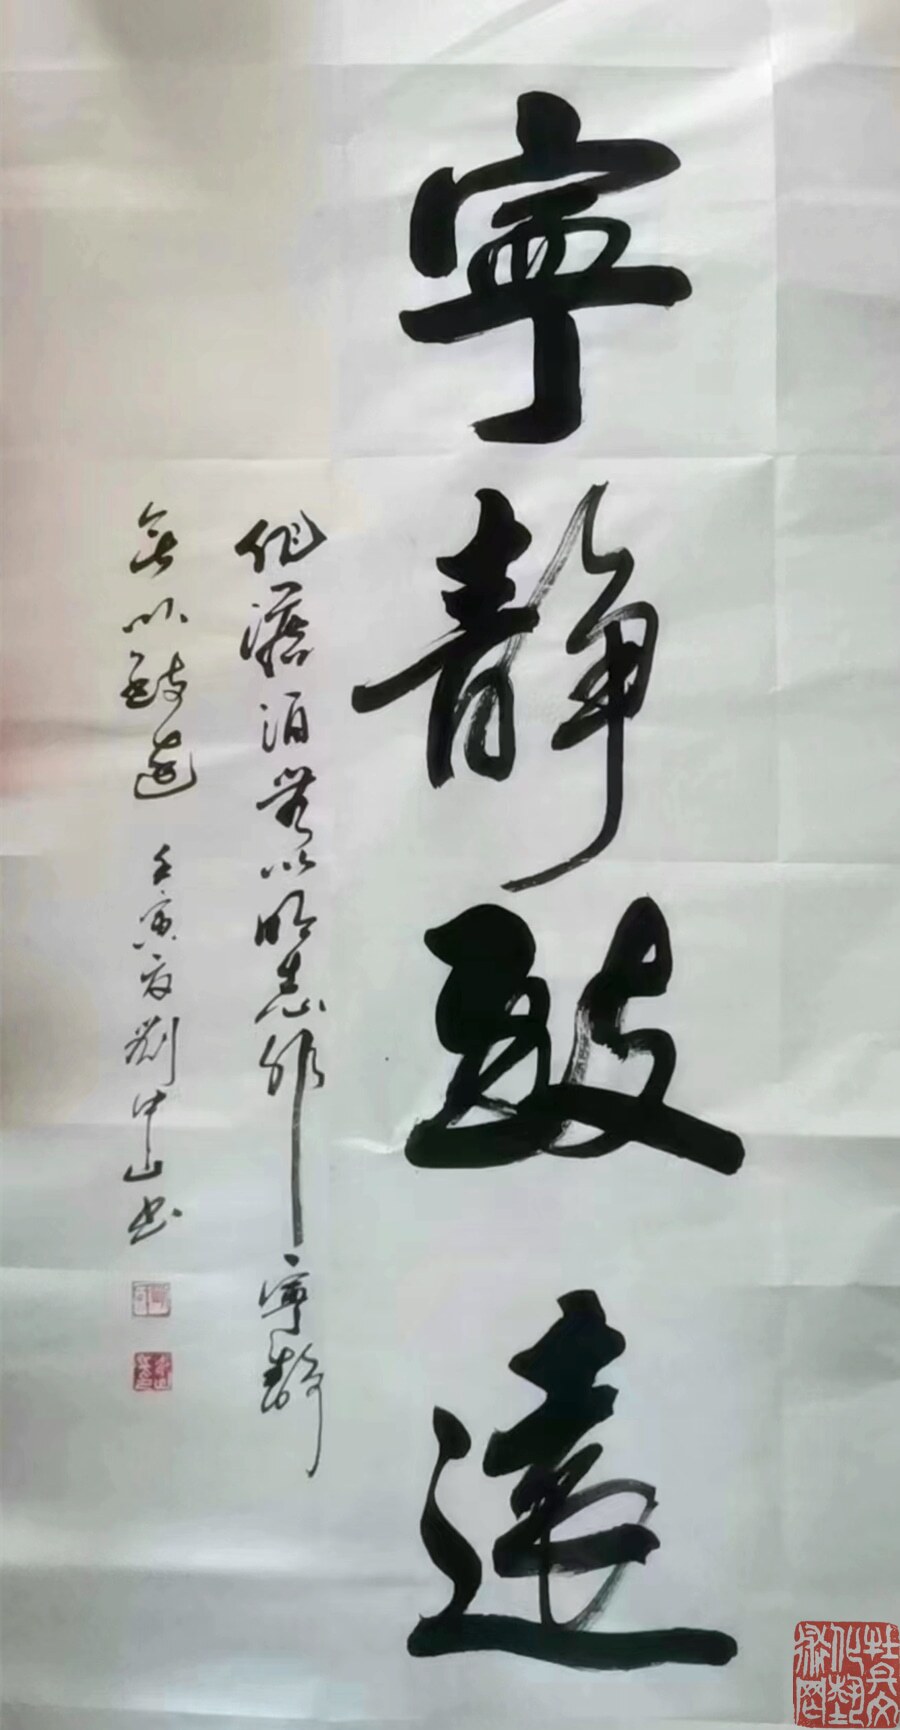 寧静致遠
非澹泊無以明志非寧静
無以致遠 壬寅夏劉中山書